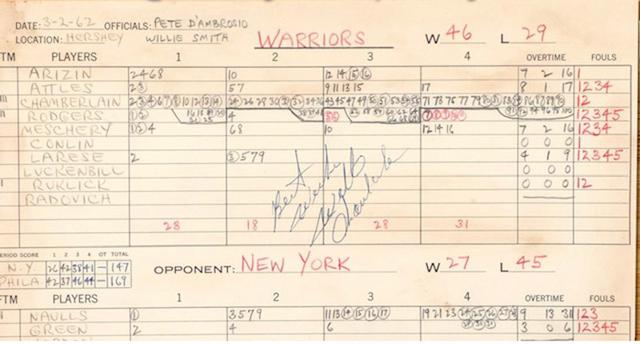 DATE: 3-2-62 OFFICIALS: PETE D'AMBROSIO
LOCATION: HERSHEY WILLIE SMITH WARRIORS W 46 L 29
FTM PLAYERS 1 2 3 4 OVERTIME FOULS
ARIZIN 2468 10 12 14 15 16 7 2 16 1
ATTLES 2 3 57 9 11 13 15 17 8 1 17 1234
CHAMBERLAIN 12
RODGERS 4 12345
MESCHERY 1 2 4 68 10 12 14 16 7 2 16 1234
CONLIN 0 0 0 1
LARESE 2 3 579 4 1 9 12345
LUCKENBILL 0 0 0
RUKLICK 0 0 0 12
RADOVICH
28 18 28 31
Best Wishes
Wilt
Chamberlain
PERIOD SCORE 1 2 3 4 OT TOTAL
N.Y. 26 42 38 41 — 147
PHILA 42 37 46 44 — 169
OPPONENT: NEW YORK W 27 L 45
FTM PLAYERS 1 2 3 4 OVERTIME FOULS
NAULLS 1 3579 11 13 14 15 16 17 19 21 23 24 25 26 27 28 29 30 31 9 13 31 123
GREEN 2 4 6 3 0 6 12345